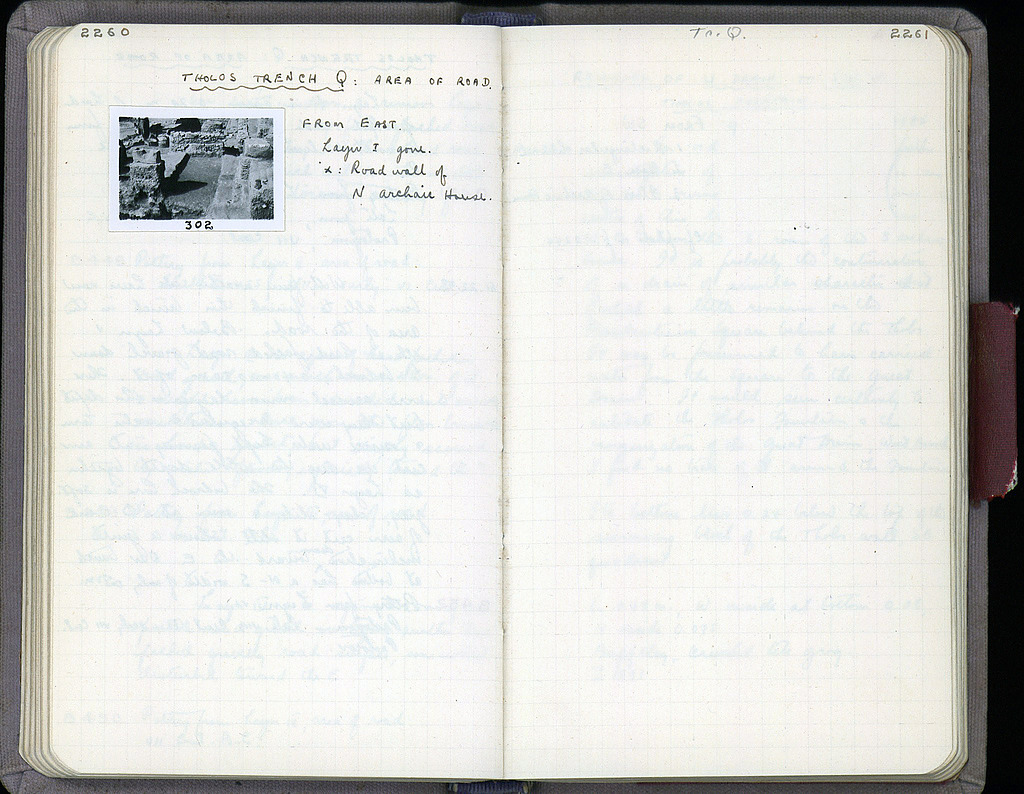 2260
THOLOS TRENCH Q: AREA OF ROAD.
FROM EAST.
Layer I gone.
x: Road wall of
N archaic House.
302
Tr. Q.
2261